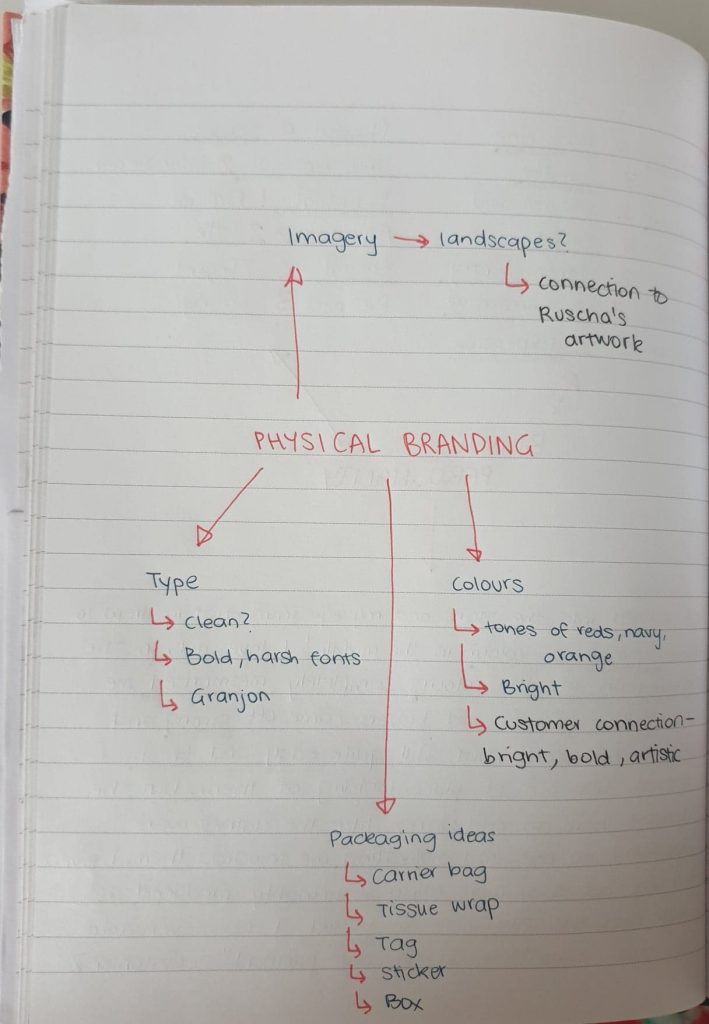 Imagery → landscapes?
↳ connection to
Ruscha's
artwork
PHYSICAL BRANDING
Type
↳ Clean?
↳ Bold, harsh fonts
↳ Granjon
Colours
↳ tones of reds, navy,
orange
↳ Bright
↳ Customer connection-
bright, bold, artistic
Packaging ideas
↳ Carrier bag
↳ Tissue wrap
↳ Tag
↳ Sticker
↳ Box